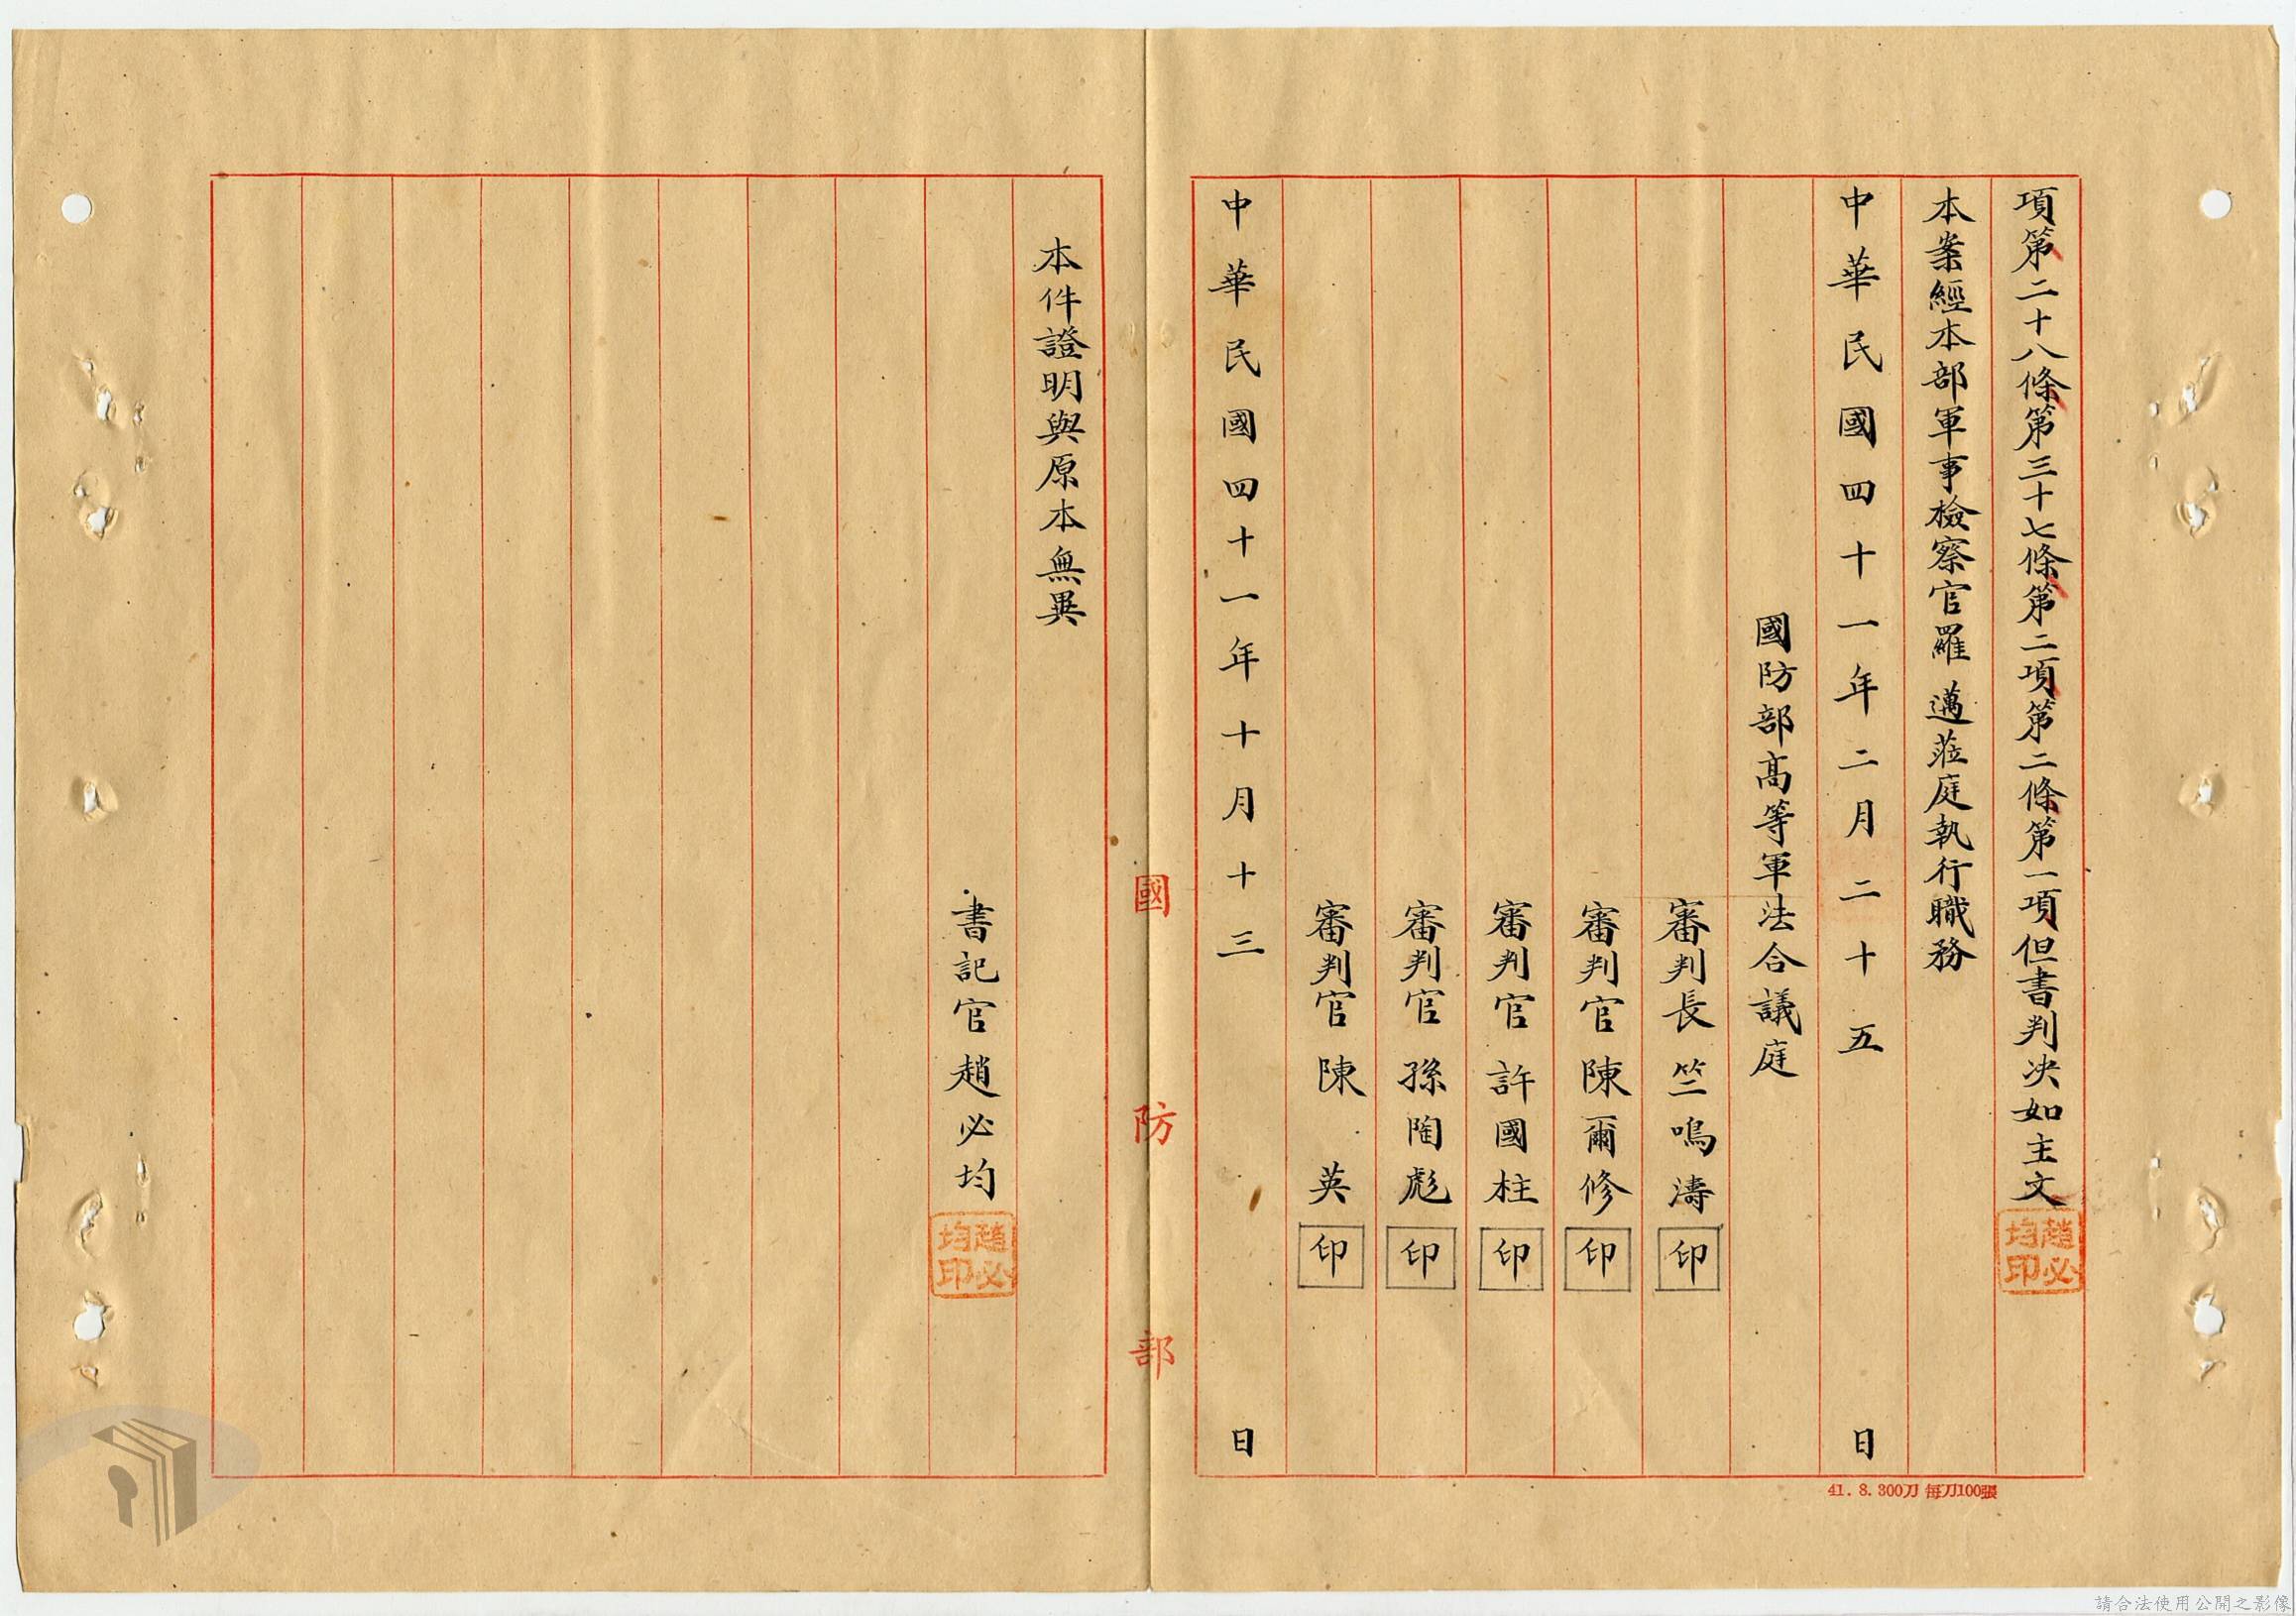 項第二十八條第三十七條第二項第二條第一項但書判決如主文
趙必均印
本案經本部軍事檢察官羅邁蒞庭執行職務
中華民國四十一年二月二十五日
國防部高等軍法合議庭
審判長竺鳴濤印
審判官陳爾修印
審判官許國柱印
審判官孫陶彪印
審判官陳英印
中華民國四十一年十月十三日
41.8.300刀 每刀100張
國防部
本件證明與原本無異
書記官趙必均
趙必均印
請合法使用公開之影像